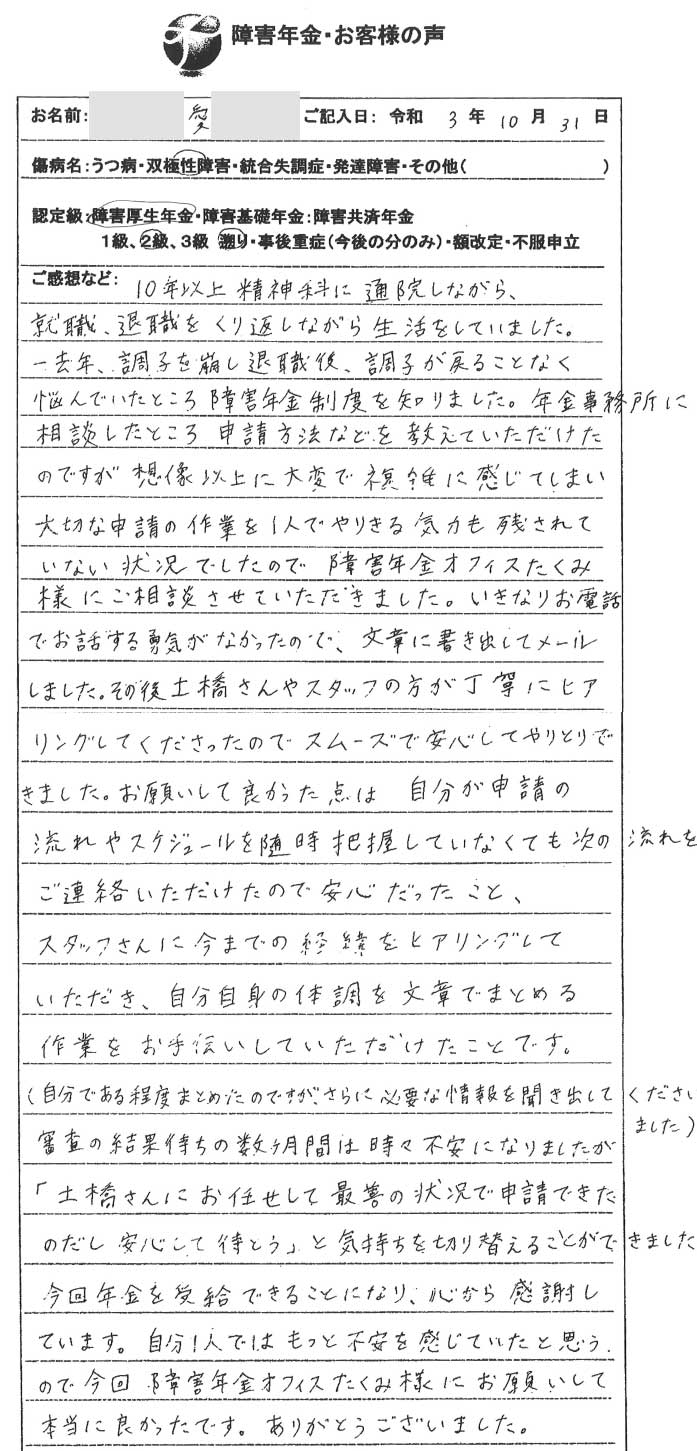 障害年金・お客様の声
お名前: 愛 ご記入日: 令和 3 年 10 月 31 日
傷病名:うつ病・双極性障害・統合失調症・発達障害・その他( )
認定級:障害厚生年金・障害基礎年金:障害共済年金
1級、2級、3級 遡り・事後重症(今後の分のみ)・額改定・不服申立
ご感想など: 10年以上 精神科に 通院しながら、
就職、退職を くり返しながら 生活をしていました。
一去年、調子を崩し退職後、調子が戻ることなく
悩んでいたところ 障害年金制度を知りました。年金事務所に
相談したところ 申請方法などを 教えていただけた
のですが 想像以上に大変で 複雑に感じてしまい
大切な申請の作業を1人でやりきる気力も残されて
いない状況でしたので 障害年金オフィスたくみ
様にご相談させていただきました。いきなりお電話
でお話する勇気がなかったので、文章に書き出してメール
しました。その後土橋さんやスタッフの方が丁寧にヒア
リングしてくださったので スムーズで安心してやりとりで
きました。お願いして良かった点は 自分が申請の
流れやスケジュールを随時把握していなくても次の流れを
ご連絡いただけたので安心だったこと、
スタッフさんに今までの経緯をヒアリングして
いただき、自分自身の体調を文章でまとめる
作業をお手伝いしていただけたことです。
(自分である程度まとめたのですが、さらに必要な情報を聞き出してください
ました)
審査の結果待ちの数ヶ月間は時々不安になりましたが
「土橋さんにお任せして最善の状況で申請できた
のだし 安心して待とう」と気持ちを切り替えることができました
今回年金を受給できることになり、心から感謝し
ています。自分1人ではもっと不安を感じていたと思う
ので今回 障害年金オフィスたくみ様にお願いして
本当に良かったです。ありがとうございました。